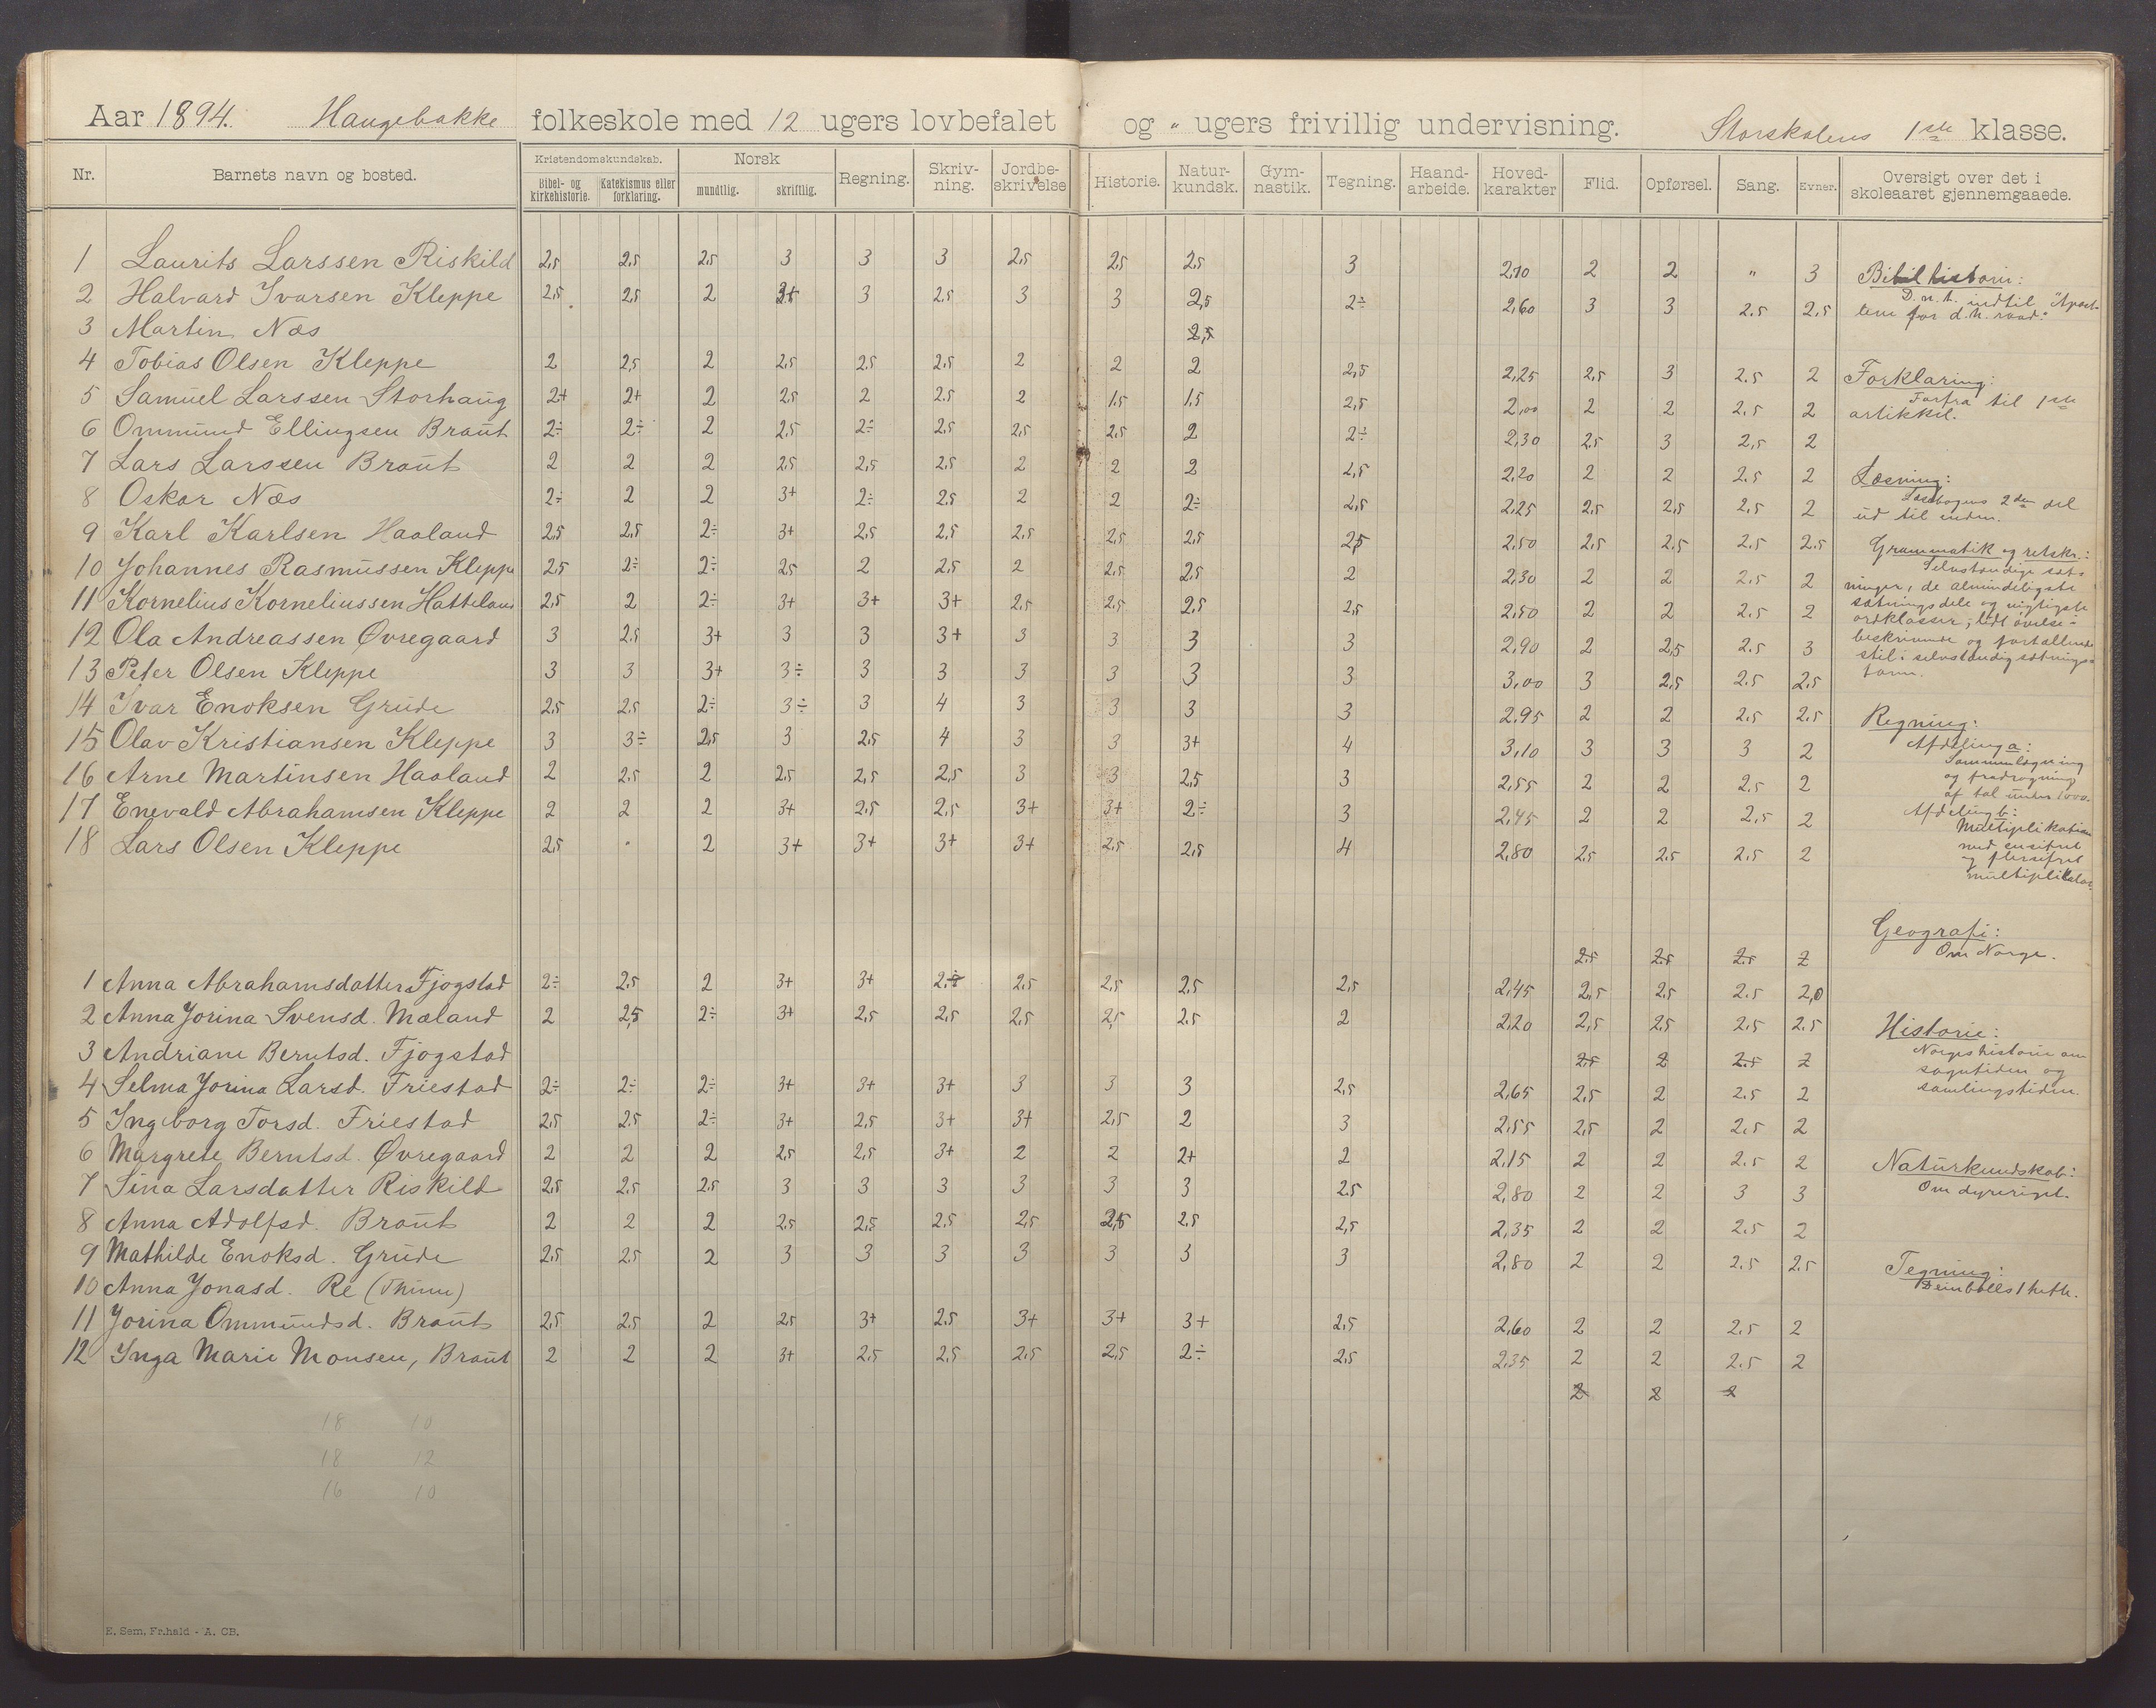 Aar 1894. Haugebakke folkeskole med 12 ugers lovbefalet og " ugers frivillig undervisning. Storskolens 1ste klasse.
Nr. Barnets navn og bosted. Kristendomskundskab. Bibel- og kirkehistorie. Katekismus eller forklaring. Norsk mundtlig. skriftlig. Regning. Skriv-ning. Jordbe-skrivelse Historie. Natur-kundsk. Gym-nastik. Tegning. Haand-arbeide. Hoved-karakter Flid. Opførsel. Sang. Evner. Oversigt over det i skoleaaret gjennemgaaede.
1 Laurits Larssen Riskild 2,5 2,5 2,5 3 3 3 2,5 2,5 2,5 3 2,70 2 2 " 3
2 Halvard Ivarsen Kleppe 2,5 2,5 2 3 2,5 3 3 2,5 2÷ 2,60 3 3 2,5 2,5
3 Martin Næs 2,5
4 Tobias Olsen Kleppe 2 2,5 2 2,5 2,5 2,5 2 2 2 2,5 2,25 2,5 3 2,5 2
5 Samuel Larssen Storhaug 2+ 2+ 2 2,5 2 2,5 2 1,5 1,5 2,5 2,00 2 2 2,5 2
6 Ommund Ellingsen Braut 2÷ 2÷ 2 2,5 2÷ 2,5 2,5 2,5 2 2÷ 2,30 2,5 3 2,5 2
7 Lars Larssen Braut 2 2 2 2,5 2,5 2,5 2 2 2 2,5 2,20 2 2 2,5 2
8 Oskar Næs 2÷ 2 2 3+ 2÷ 2,5 2 2 2÷ 2,5 2,25 2,5 2,5 2,5 2
9 Karl Karlsen Haaland 2,5 2,5 2÷ 3+ 2,5 2,5 2,5 2,5 2,5 2,5 2,50 2,5 2,5 2,5 2,5
10 Johannes Rasmussen Kleppe 2,5 2÷ 2÷ 2,5 2 2,5 2 2,5 2,5 2 2,30 2 2 2,5 2
11 Kornelius Korneliussen Hatteland 2,5 2 2÷ 3+ 3+ 3+ 2,5 2,5 2,5 2,5 2,50 2 2 2,5 2
12 Ola Andreassen Øvregaard 3 2,5 3+ 3 3 3+ 3 3 3 3 2,90 2 2,5 2,5 3
13 Peter Olsen Kleppe 3 3 3+ 3÷ 3 3 3 3 3 3 3,00 3 2,5 2,5 2,5
14 Ivar Enoksen Grude 2,5 2,5 2÷ 3÷ 3 4 3 3 3 3 2,95 2 2 2,5 2,5
15 Olav Kristiansen Kleppe 3 3÷ 2,5 3 2,5 4 3 3 3+ 4 3,10 3 3 3 2
16 Arne Martinsen Haaland 2 2,5 2 2,5 2,5 2,5 3 3 2,5 3 2,55 2 2 2,5 2
17 Enevald Abrahamsen Kleppe 2 2 2 3+ 2,5 2,5 3+ 3+ 2÷ 3 2,45 2 2 2,5 2
18 Lars Olsen Kleppe 2,5 . 2 3+ 3+ 3+ 3+ 2,5 2,5 4 2,80 2,5 2,5 2,5 2
2,5 2,5 2,5 2
1 Anna Abrahamsdatter Fjogstad 2÷ 2,5 2 3+ 3+ 2,5 2,5 2,5 2,5 2,45 2,5 2,5 2,5 2,0
2 Anna Jorina Svensd. Mæland 2 2,5 2÷ 3+ 2,5 2,5 2,5 2,5 2,5 2 2,20 2,5 2,5 2,5 2,5
3 Andriane Berntsd. Fjogstad 2,5 2 2,5 2
4 Selma Jorina Larsd. Friestad 2÷ 2÷ 2÷ 3+ 3+ 3+ 3 3 3 2,5 2,65 2,5 2 2,5 2
5 Ingborg Torsd. Friestad 2,5 2,5 2÷ 3+ 2,5 3+ 3+ 2,5 2 3 2,55 2,5 2 2,5 2
6 Margrete Berntsd. Øvregaard 2 2 2 2,5 2,5 3+ 2 2 2+ 2 2,15 2 2 2,5 2
7 Sina Larsdatter Riskild 2,5 2,5 2,5 3 3 3 3 3 3 2,5 2,80 2 2 3 3
8 Anna Adolfsd. Braut 2 2 2 2,5 2,5 2,5 2,5 2,5 2,5 2,5 2,35 2 2 2,5 2
9 Mathilde Enoksd. Grude 2,5 2,5 2 3 3 3 3 3 3 3 2,80 2 2 2,5 2,5
10 Anna Jonasd. Re (Thime)
11 Jorina Ommundsd. Braut 2,5 2,5 2 2,5 3+ 2,5 3+ 3+ 3+ 2,5 2,60 2 2 2,5 2
12 Inga Marie Monsen, Braut 2 2 2 3+ 2,5 2,5 2,5 2,5 2÷ 2,5 2,35 2 2 2,5 2
2 2 2
18 10
18 12
16 10
E. Sem, Fr.hald - A. CB.
Bibelhistorie:
D. n. t. indtil "Apost-
lene for d. h. raad."
Forklaring:
Forfra til 1ste
artikkel.
Læsning:
Læsebogens 2den del
ud til enden.
Grammatik og retskr.:
Selvstændige sæt-
ninger; de almindeligste
sætningsdele og vigtigste
ordklasser; lidt øvelse i
beskrivende og fortællende
stil i selvstændig sætnings-
form.
Regning:
Afdeling a:
Sammenlægning
og fradragning
af tal under 1000.
Afdeling b:
Multiplikation
med ensifret
og flersifret
multiplikator.
Geografi:
Om Norge.
Historie:
Norges historie om
sagntiden og
samlingstiden.
Naturkundskab:
Om dyreriget.
Tegning:
Deinbolls 1 hefte.